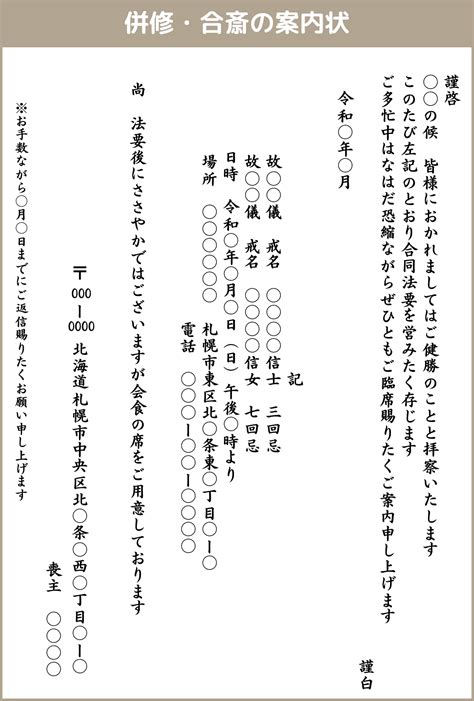 併修・合斎の案内状
謹啓
○○の候　皆様におかれましてはご健勝のことと拝察いたします
このたび左記のとおり合同法要を営みたく存じます
ご多忙中はなはだ恐縮ながらぜひともご臨席賜りたくご案内申し上げます
謹白
令和○年○月
記
故○○儀　戒名　○○○○信士　三回忌
故○○儀　戒名　○○○○信女　七回忌
日時　令和○年○月○日（日）午後○時より
場所　○○○○○○　札幌市東区北○条東○丁目○ー○
電話　○○○ー○○ー○○○○
尚　法要後にささやかではございますが会食の席をご用意しております
〒000ー0000　北海道札幌市中央区北○条○西○丁目○ー○
喪主　○○○○
※お手数ながら○月○日までにご返信賜りたくお願い申し上げます